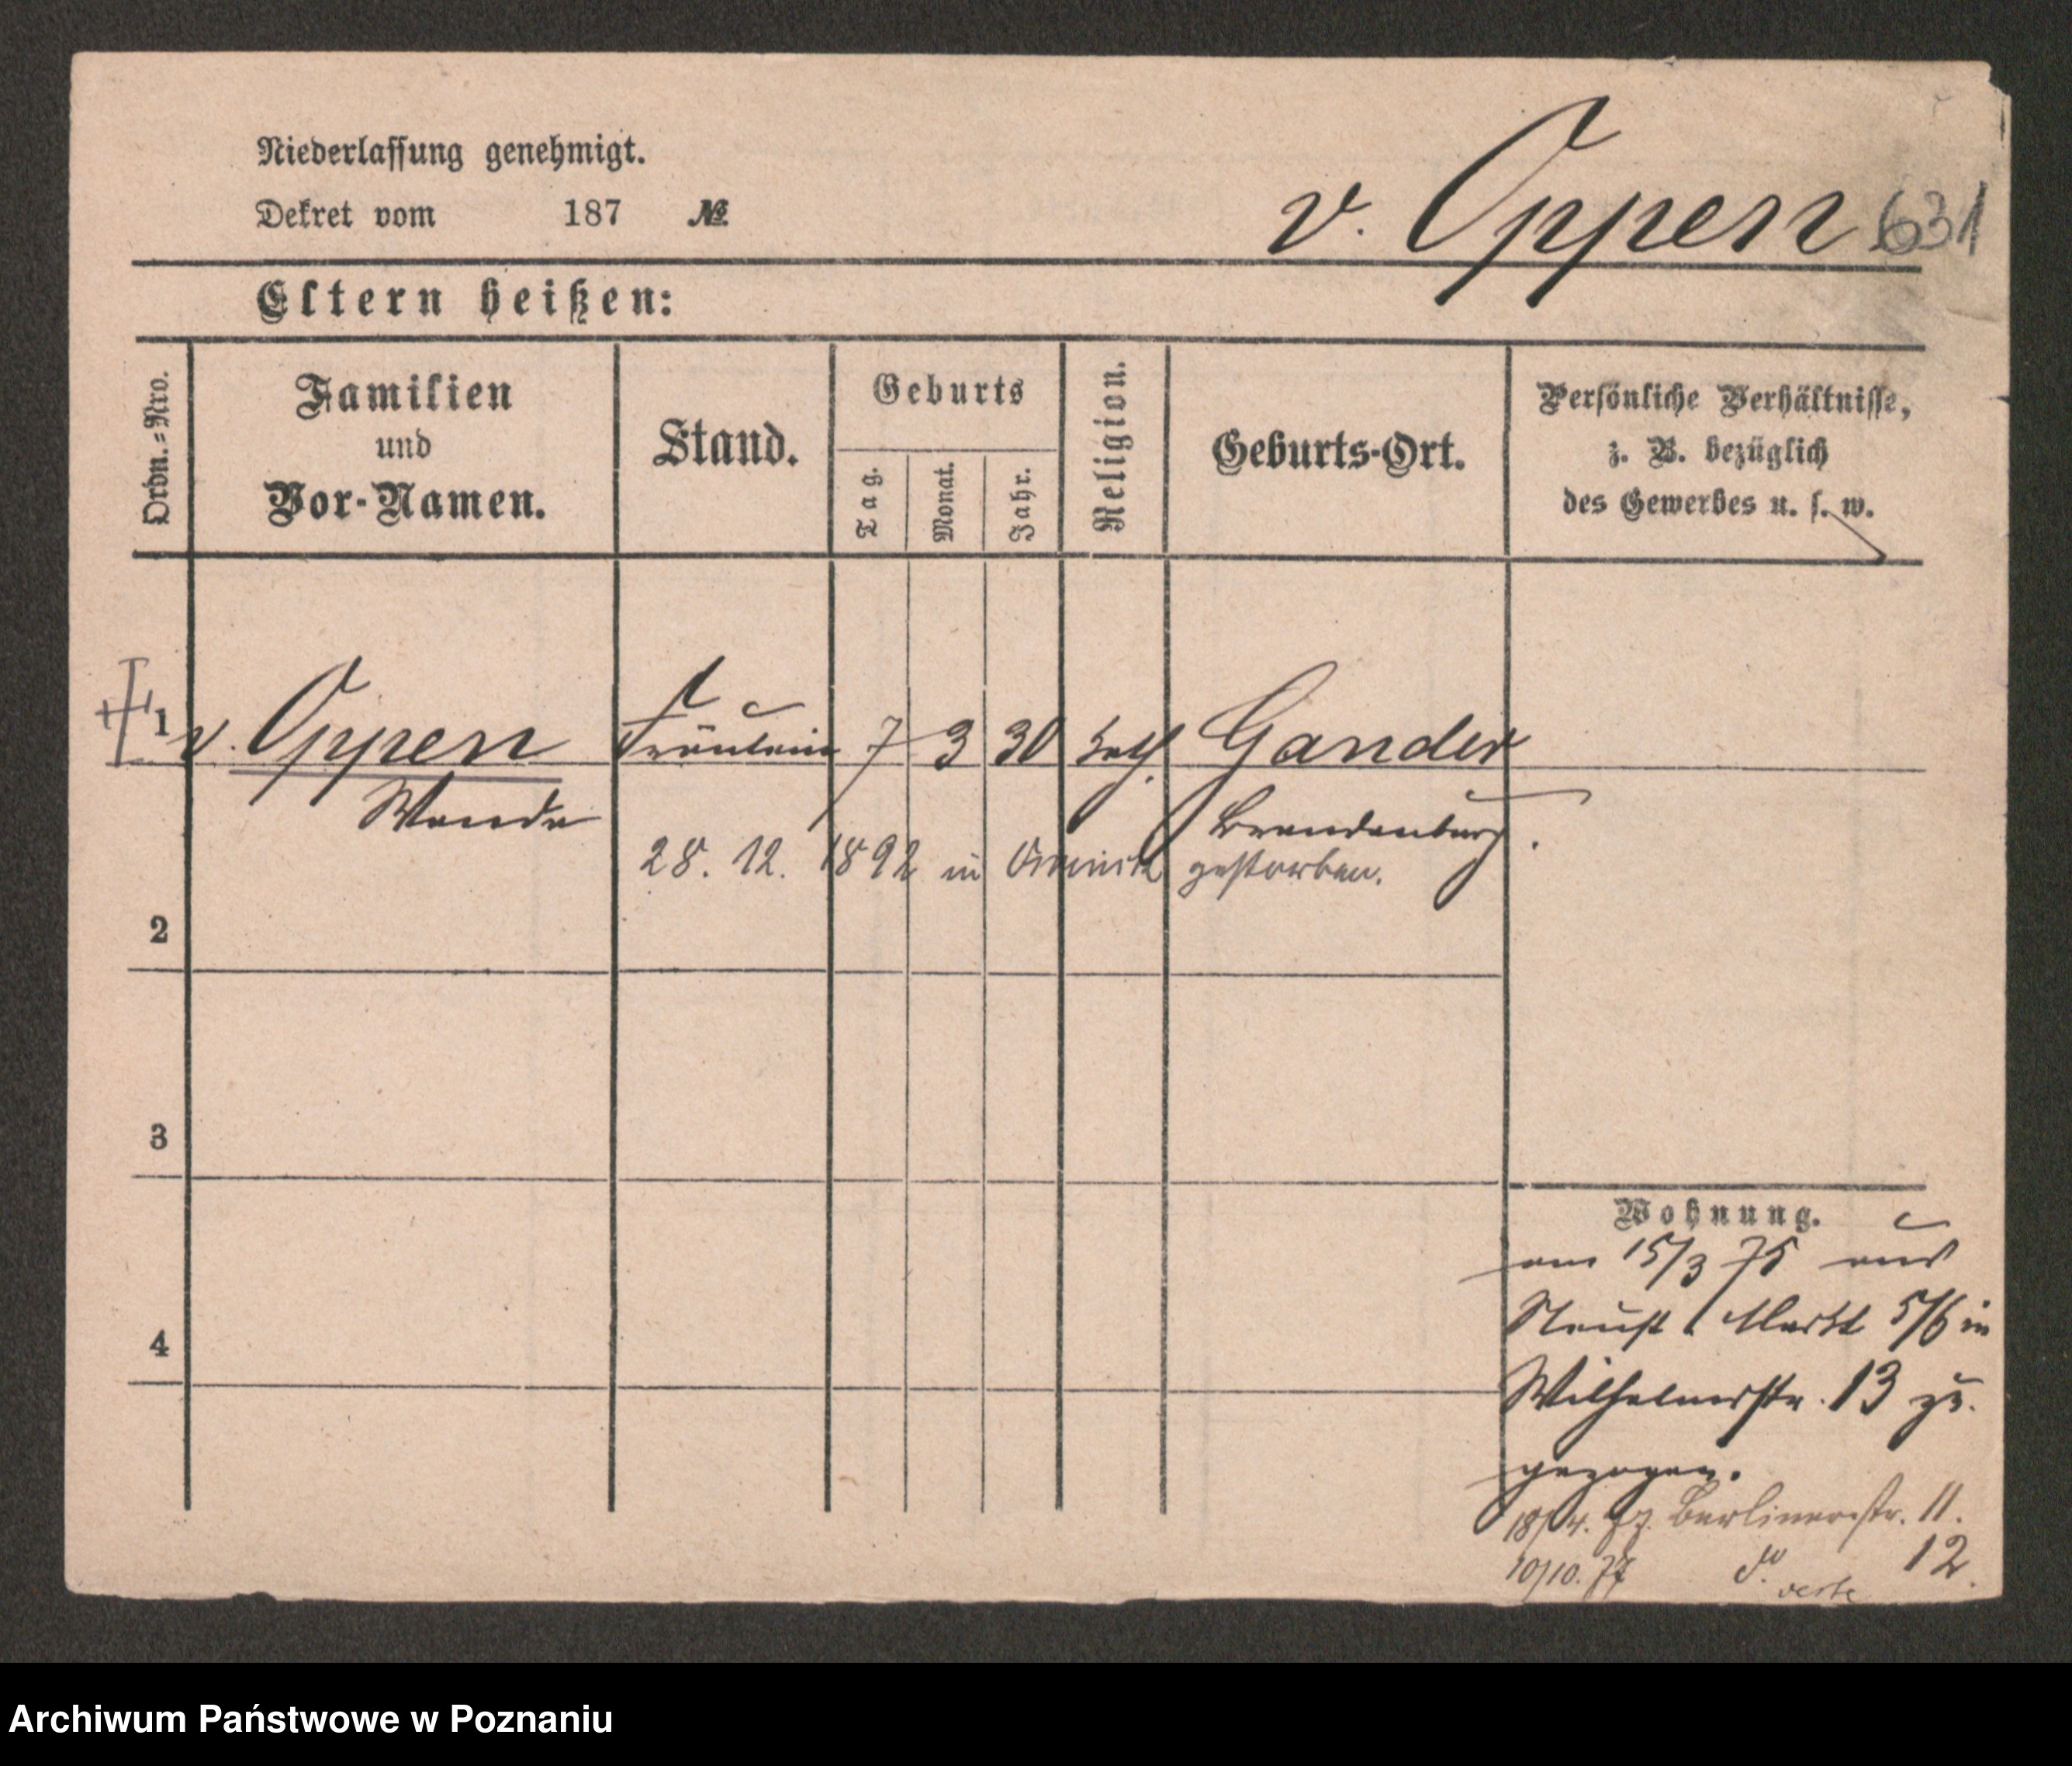 Niederlassung genehmigt.
Dekret vom 187 №
v. Oppen 631
Eltern heißen:
Ordn.-Nro.
Familien und Vor-Namen.
Stand.
Geburts
Tag.
Monat.
Jahr.
Religion.
Geburts-Ort.
Persönliche Verhältnisse,
z. B. bezüglich
des Gewerbes u. s. w.
1 v. Oppen Fräulein 7 3 30 kath Gander
Wanda Brandenburg.
28. 12. 1892 in gestorben.
2
3
4
Wohnung.
am 15/3 75 aus
Neust. Markt 5/6 in
Wilhelmsstr. 13 zu.
gezogen.
18/4. 77. Berlinerstr. 11.
10/10. 77 do 12.
verte
Archiwum Państwowe w Poznaniu